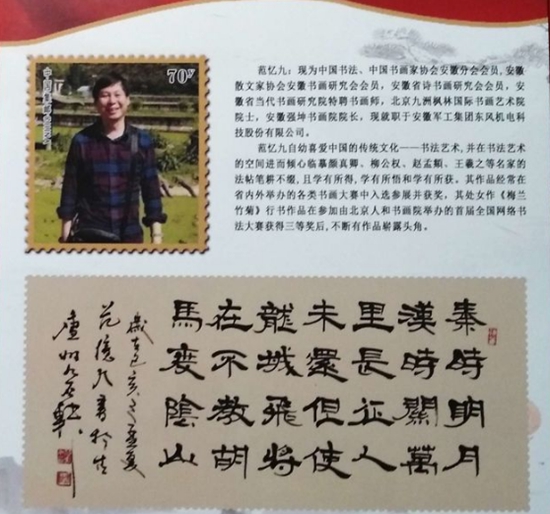 70分
范忆九：现为中国书法、中国书画家协会安徽分会会员,安徽
散文家协会安徽书画研究会会员，安徽省诗书画研究会会员，安
徽省当代书画研究院特聘书画师，北京九洲枫林国际书画艺术院
院士，安徽强坤书画院院长，现就职于安徽军工集团东风机电科
技股份有限公司。
范忆九自幼喜爱中国的传统文化——书法艺术,并在书法艺术
的空间进而倾心临摹颜真卿、柳公权、赵孟頫、王羲之等名家的
法帖笔耕不缀,且学有所得,学有所悟和学有所获。其作品经常在
省内外举办的各类书画大赛中入选参展并获奖，其处女作《梅兰
竹菊》行书作品在参加由北京人和书画院举办的首届全国网络书
法大赛获得三等奖后,不断有作品崭露头角。
秦時明月
漢時關萬
里長征人
未還但使
龍城飛將
在不教胡
馬度陰山
歲在己亥之孟夏
范憶九書於
廬州